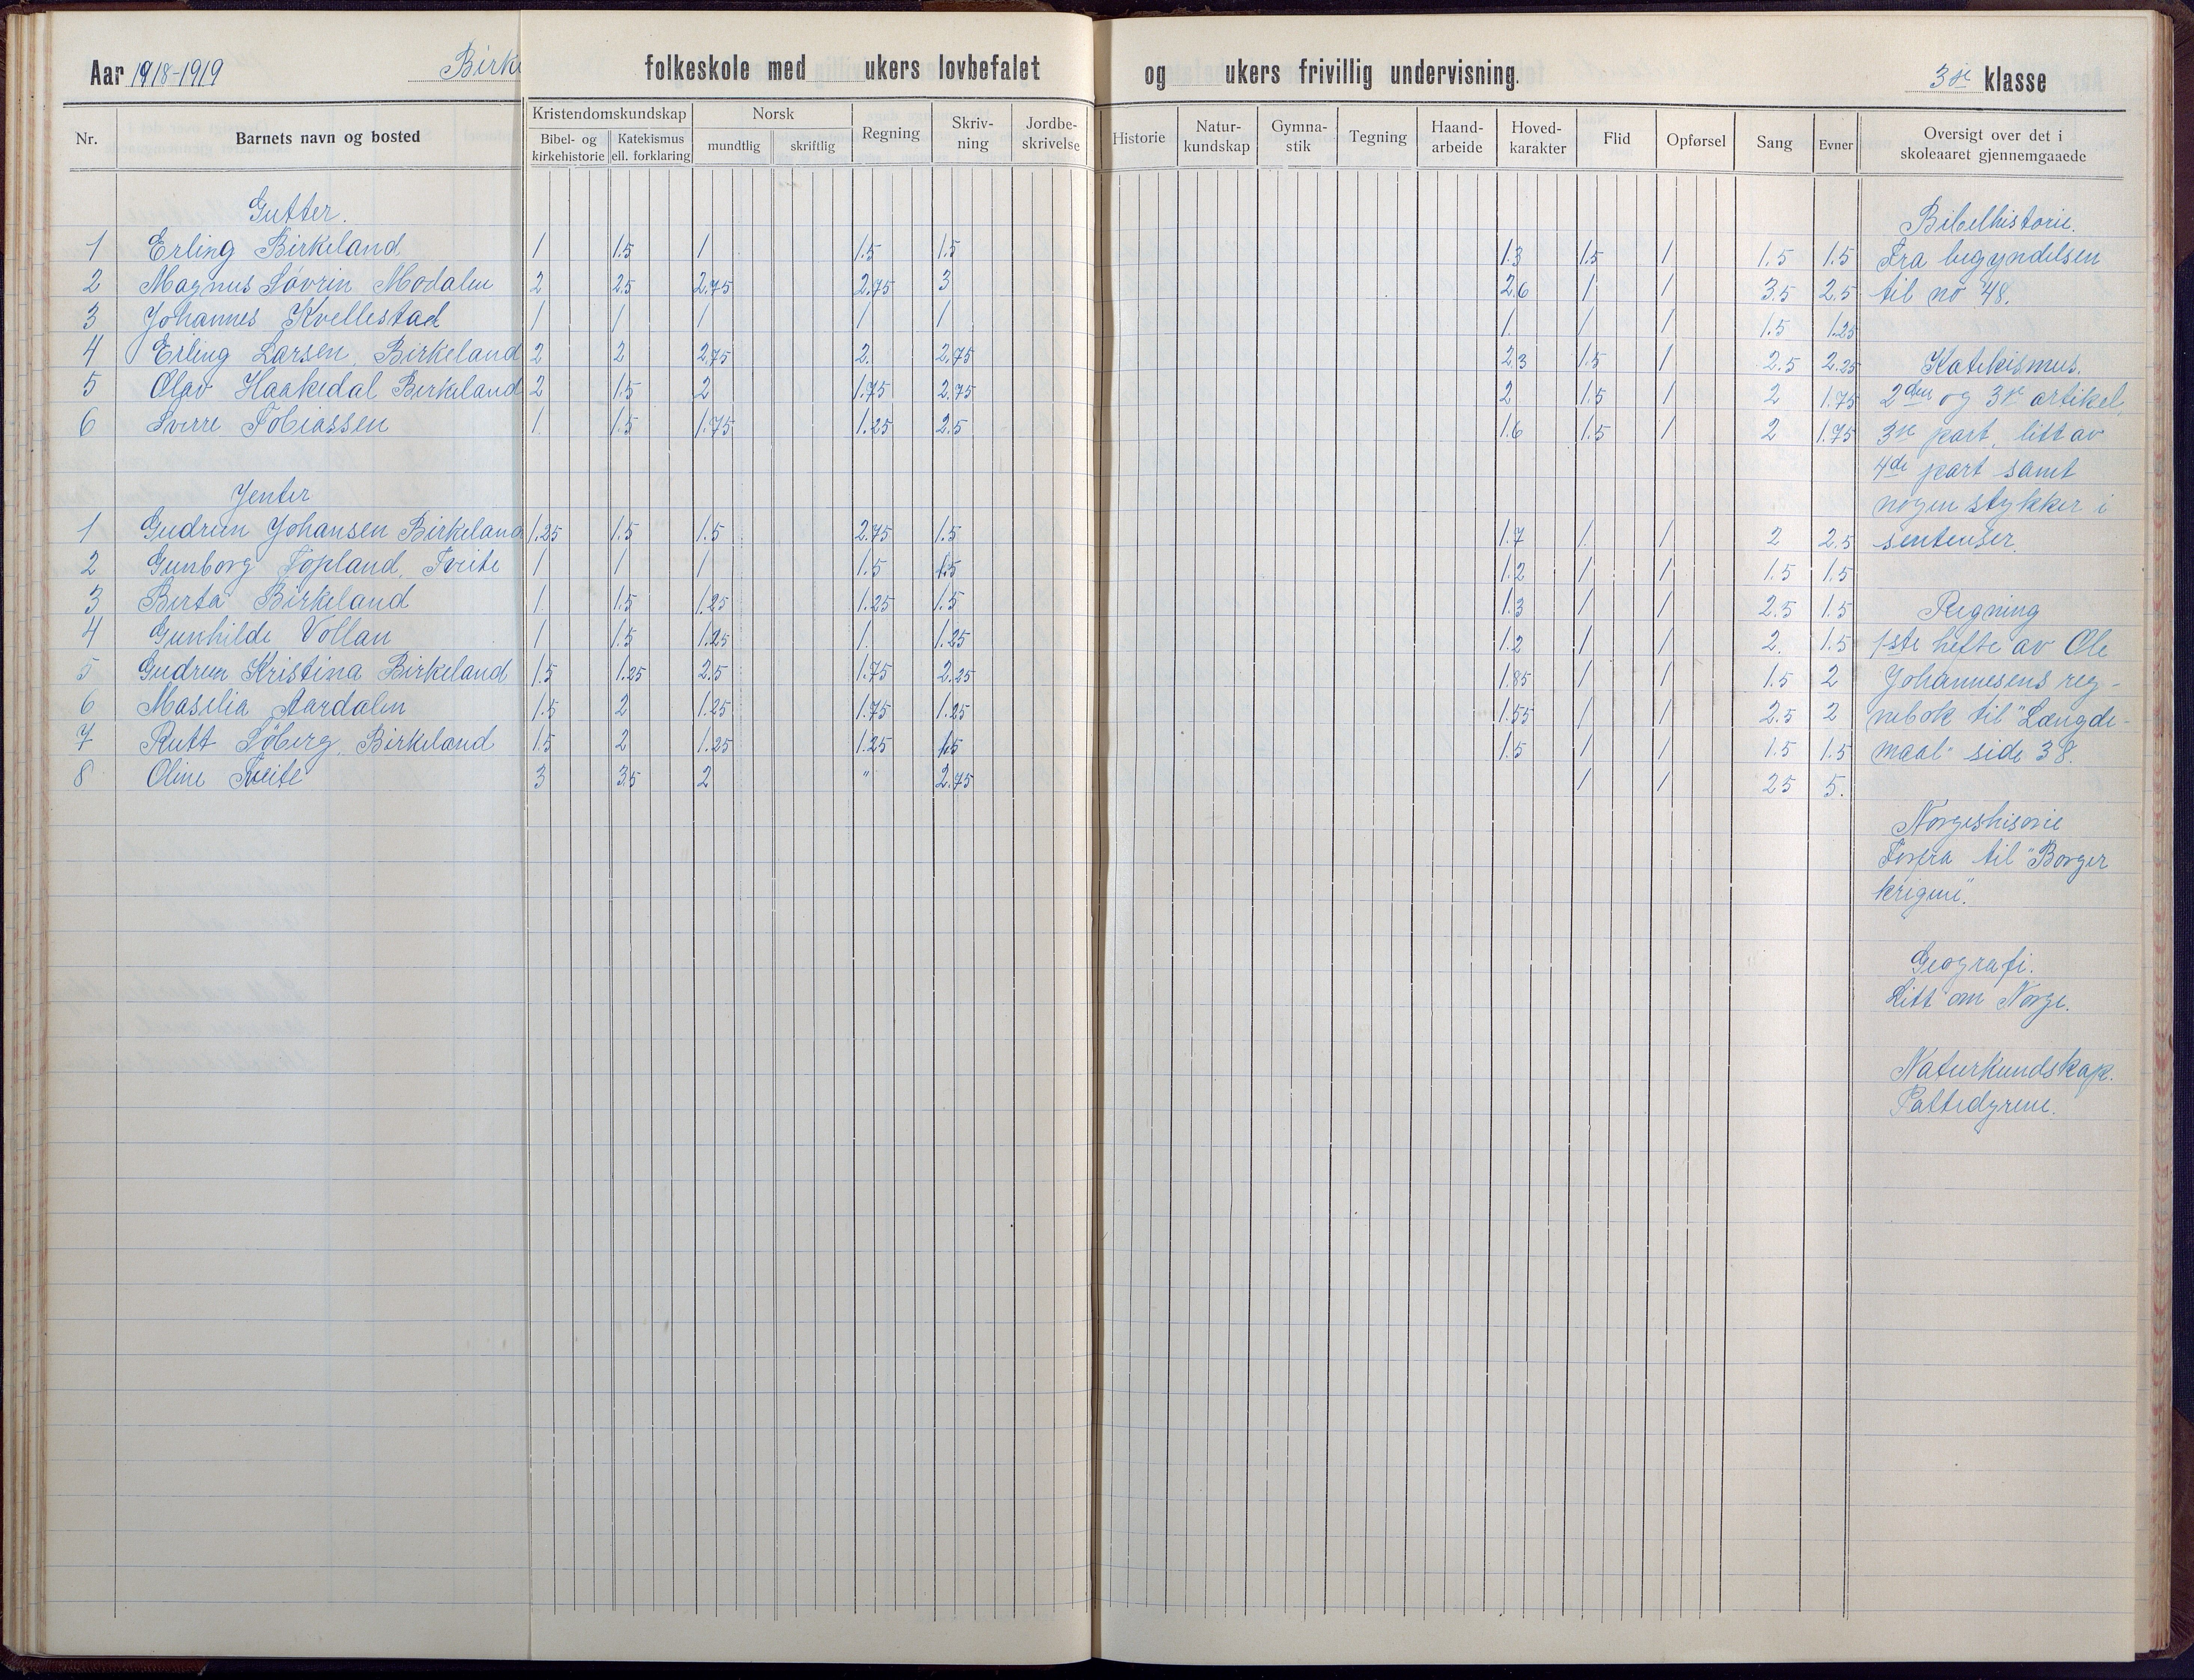 Aar 1918-1919 Birke folkeskole med ukers lovbefalet og ukers frivillig undervisning. 3je klasse
Nr. Barnets navn og bosted Kristendomskundskap Bibel- og kirkehistorie Katekismus ell. forklaring Norsk mundtlig skriftlig Regning Skriv-ning Jordbe-skrivelse Historie Natur-kundskap Gymna-stik Tegning Haand-arbeide Hoved-karakter Flid Opførsel Sang Evner Oversigt over det i skoleaaret gjennemgaaede
Gutter. Bibelhistorie.
1 Erling Birkeland 1 1.5 1 1.5 1.5 1.3 1.5 1 1.5 1.5 Fra begyndelsen
2 Magnus Søvrin Modalen 2 2.5 2.75 2.75 3 2.6 1 1 3.5 2.5 til no 48.
3 Johannes Kvellestad 1 1 1 1 1 1. 1 1 1.5 1.25
4 Erling Larsen, Birkeland 2 2 2.75 2. 2.75 2.3 1.5 1 2.5 2.25 Katekismus.
5 Olav Haakedal Birkeland 2 1.5 2 1.75 2.75 2 1.5 1 2 1.75 2den og 3je artikel,
6 Sverre Tobiassen 1 1.5 1.75 1.25 2.5 1.6 1.5 1 2 1.75 3je part, litt av
4de part samt
Jenter nogen stykker i
1 Gudrun Johansen Birkeland 1.25 1.5 1.5 2.75 1.5 1.7 1 1 2 2.5 sentenser.
2 Gunborg Topland, Tveite 1 1 1 1.5 1.5 1.2 1 1 1.5 1.5
3 Berta Birkeland 1 1.5 1.25 1.25 1.5 1.3 1 1 2.5 1.5 Regning
4 Gunhilde Vollan 1 1.5 1.25 1. 1.25 1.2 1 1 2. 1.5 1ste hefte av Ole
5 Gudrun Kristina Birkeland 1.5 1.25 2.5 1.75 2.25 1.85 1 1 1.5 2 Johannesens reg-
6 Maselia Aardalen 1.5 2 1.25 1.75 1.25 1.55 1 1 2.5 2 nebok til "Længde-
7 Rutt Søberg, Birkeland 1.5 2 1.25 1.25 1.5 1.5 1 1 1.5 1.5 maal" side 38.
8 Oline Tveite 3 3.5 2 " 2.75 1 1 2.5 5.
Norgeshisorie
Forfra til "Borger
krigene".
Geografi.
Litt om Norge.
Naturkundskap.
Pattedyrene.